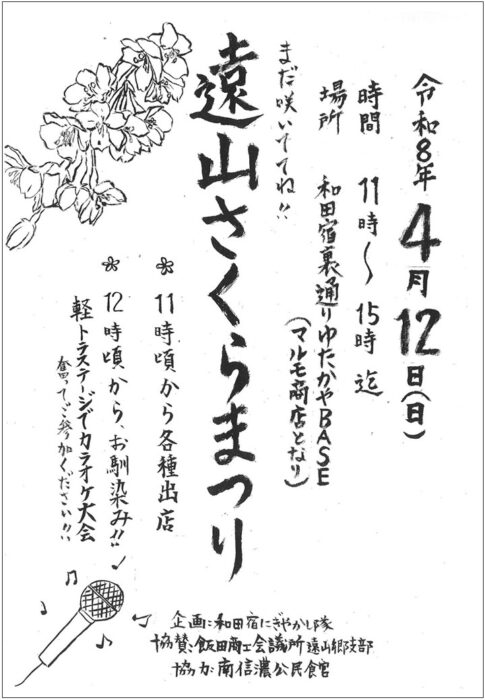 令和8年4月12日(日)
時間 11時〜15時迄
場所 和田宿裏通りゆたかやBASE
(マルモ商店となり)
まだ咲いててね!!
遠山さくらまつり
11時頃から各種出店
12時頃から、お馴染み!!
軽トラステージでカラオケ大会
奮ってご参加ください!!
企画:和田宿にぎやかし隊
協賛:飯田商工会議所遠山郷支部
協力:南信濃公民館